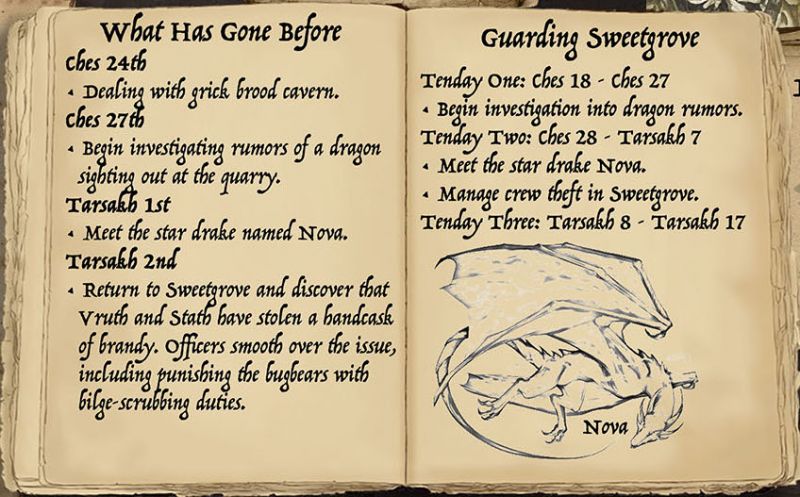 What Has Gone Before
Ches 24th
• Dealing with grick brood cavern.
Ches 27th
• Begin investigating rumors of a dragon
sighting out at the quarry.
Tarsakh 1st
• Meet the star drake named Nova.
Tarsakh 2nd
• Return to Sweetgrove and discover that
Vruth and Stath have stolen a handcask
of brandy. Officers smooth over the issue,
including punishing the bugbears with
bilge-scrubbing duties.
Guarding Sweetgrove
Tenday One: Ches 18 - Ches 27
• Begin investigation into dragon rumors.
Tenday Two: Ches 28 - Tarsakh 7
• Meet the star drake Nova.
• Manage crew theft in Sweetgrove.
Tenday Three: Tarsakh 8 - Tarsakh 17
Nova